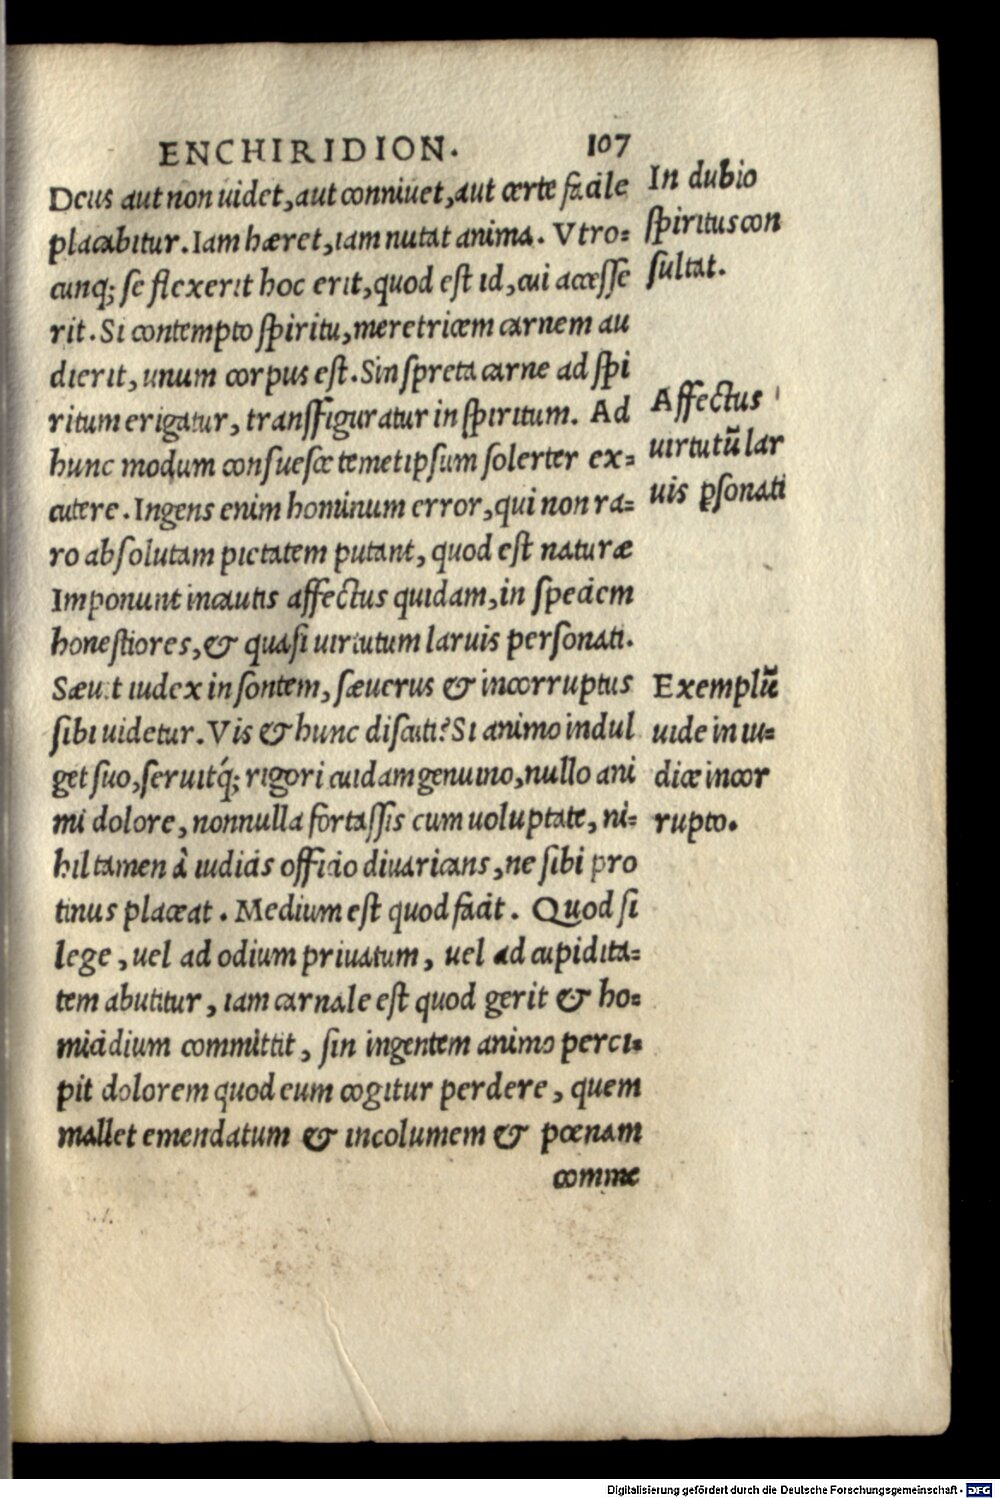 ENCHIRIDION. 107
Deus aut non uidet, aut conniuet, aut certe facile
placabitur. Iam hæret, iam nutat anima. Vtro=
cunq; se flexerit hoc erit, quod est id, cui accesse
rit. Si contempto spiritu, meretricem carnem au
dierit, unum corpus est. Sin spreta carne ad spi
ritum erigatur, transfiguratur in spiritum. Ad
hunc modum consuesce temetipsum solerter ex=
cutere. Ingens enim hominum error, qui non ra=
ro absolutam pietatem putant, quod est naturæ
Imponunt incautis affectus quidam, in speciem
honestiores, & quasi uirtutum laruis personati.
Sæuit iudex in sontem, sæuerus & incorruptus
sibi uidetur. Vis & hunc discuti? Si animo indul
get suo, seruitq́; rigori cuidam genuino, nullo ani
mi dolore, nonnulla fortassis cum uoluptate, ni=
hil tamen à iudicis officio diuaricans, ne sibi pro
tinus placeat. Medium est quod facit. Quod si
lege, uel ad odium priuatum, uel ad cupidita=
tem abutitur, iam carnale est quod gerit & ho=
micidium committit, sin ingentem animo perci=
pit dolorem quod eum cogitur perdere, quem
mallet emendatum & incolumem & pœnam
comme
In dubio
spiritus con
sultat.
Affectus
uirtutũ lar
uis ꝑsonati
Exemplũ
uide in iu=
dice incor
rupto.
Digitalisierung gefördert durch die Deutsche Forschungsgemeinschaft - DFG